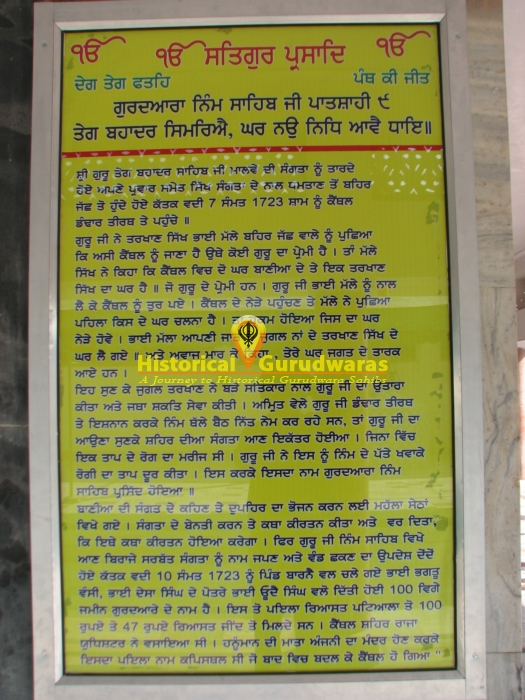 ੴ ੴ ਸਤਿਗੁਰ ਪ੍ਰਸਾਦਿ ੴ
ਦੇਗ ਤੇਗ ਫਤਹਿ ਪੰਥ ਕੀ ਜੀਤ
ਗੁਰਦਆਰਾ ਨਿੰਮ ਸਾਹਿਬ ਜੀ ਪਾਤਸ਼ਾਹੀ ੯
ਤੇਗ ਬਹਾਦਰ ਸਿਮਰਿਐ, ਘਰ ਨਉ ਨਿਧਿ ਆਵੈ ਧਾਇ॥
ਸ਼੍ਰੀ ਗੁਰੂ ਤੇਗ ਬਹਾਦਰ ਸਾਹਿਬ ਜੀ ਮਾਲਵੇ ਦੀ ਸੰਗਤਾ ਨੂੰ ਤਾਰਦੇ
ਹੋਏ ਅਪਣੇ ਪ੍ਰਵਾਰ ਸਮੇਤ ਸਿੱਖ ਸੰਗਤਾ ਦੇ ਨਾਲ ਧਮਤਾਣ ਤੋਂ ਬਹਿਰ
ਜੱਛ ਤੇ ਹੁੰਦੇ ਹੋਏ ਕੱਤਕ ਵਦੀ 7 ਸੰਮਤ 1723 ਸ਼ਾਮ ਨੂੰ ਕੈਂਥਲ
ਡੰਢਾਰ ਤੀਰਥ ਤੇ ਪਹੁੰਚੇ ॥
ਗੁਰੂ ਜੀ ਨੇ ਤਰਖਾਣ ਸਿੱਖ ਭਾਈ ਮੱਲੇ ਬਹਿਰ ਜੱਛ ਵਾਲੇ ਨੂੰ ਪੁਛਿਆ
ਕਿ ਅਸੀ ਕੈਂਥਲ ਨੂੰ ਜਾਣਾ ਹੈ ਉਥੇ ਕੋਈ ਗੁਰੂ ਦਾ ਪ੍ਰੇਮੀ ਹੈ । ਤਾਂ ਮੱਲੇ
ਸਿੱਖ ਨੇ ਕਿਹਾ ਕਿ ਕੈਂਥਲ ਵਿਚ ਦੋ ਘਰ ਬਾਣੀਆ ਦੇ ਤੇ ਇਕ ਤਰਖਾਣ
ਸਿੱਖ ਦਾ ਘਰ ਹੈ ॥ ਜੋ ਗੁਰੂ ਦੇ ਪ੍ਰੇਮੀ ਹਨ । ਗੁਰੂ ਜੀ ਭਾਈ ਮੱਲੇ ਨੂੰ ਨਾਲ
ਲੈ ਕੇ ਕੈਂਥਲ ਨੂੰ ਤੁਰ ਪਏ । ਕੈਂਥਲ ਦੇ ਨੇੜੇ ਪਹੁੰਚਣ ਤੇ ਮੱਲੇ ਨੇ ਪੁਛਿਆ
ਪਹਿਲਾ ਕਿਸ ਦੇ ਘਰ ਚਲਨਾ ਹੈ । ਹੋਇਆ ਜਿਸ ਦਾ ਘਰ
ਨੇੜੇ ਹੋਵੇ । ਭਾਈ ਮੱਲਾ ਆਪਣੀ ਜੁਗਲ ਨਾਂ ਦੇ ਤਰਖਾਣ ਸਿੱਖ ਦੇ
ਘਰ ਲੈ ਗਏ ॥ ਅਤੇ ਅਵਾਜ਼ ਮਾਰ ਕੇ ਤੇਰੇ ਘਰ ਜਗਤ ਦੇ ਤਾਰਕ
ਆਏ ਹਨ ।
Historical Gurudwaras
A Journey to Historical Gurudwara Sahibs
ਇਹ ਸੁਣ ਕੇ ਜੁਗਲ ਤਰਖਾਣ ਨੇ ਬੜੇ ਸਤਿਕਾਰ ਨਾਲ ਗੁਰੂ ਜੀ ਦਾ ਉਤਾਰਾ
ਕੀਤਾ ਅਤੇ ਜਥਾ ਸ਼ਕਤਿ ਸੇਵਾ ਕੀਤੀ । ਅਮ੍ਰਿਤ ਵੇਲੇ ਗੁਰੂ ਜੀ ਡੰਢਾਰ ਤੀਰਥ
ਤੇ ਇਸ਼ਨਾਨ ਕਰਕੇ ਨਿੰਮ ਥੱਲੇ ਬੈਠ ਨਿੱਤ ਨੇਮ ਕਰ ਰਹੇ ਸਨ, ਤਾਂ ਗੁਰੂ ਜੀ ਦਾ
ਆਉਣਾ ਸੁਣਕੇ ਸ਼ਹਿਰ ਦੀਆ ਸੰਗਤਾ ਆਣ ਇਕੱਤਰ ਹੋਈਆ । ਜਿਨਾ ਵਿੱਚ
ਇਕ ਤਾਪ ਦੇ ਰੋਗ ਦਾ ਮਰੀਜ ਸੀ । ਗੁਰੂ ਜੀ ਨੇ ਇਸ ਨੂੰ ਨਿੰਮ ਦੇ ਪੱਤੇ ਖਵਾਕੇ
ਰੋਗੀ ਦਾ ਤਾਪ ਦੂਰ ਕੀਤਾ । ਇਸ ਕਰਕੇ ਇਸਦਾ ਨਾਮ ਗੁਰਦਆਰਾ ਨਿੰਮ
ਸਾਹਿਬ ਪ੍ਰਸਿੱਦ ਹੋਇਆ ॥
ਬਾਣੀਆ ਦੀ ਸੰਗਤ ਦੇ ਕਹਿਣ ਤੇ ਦੁਪਹਿਰ ਦਾ ਭੋਜਨ ਕਰਨ ਲਈ ਮਹੱਲਾ ਸੇਠਾਂ
ਵਿਖੇ ਗਏ । ਸੰਗਤਾ ਦੇ ਬੇਨਤੀ ਕਰਨ ਤੇ ਕਥਾ ਕੀਰਤਨ ਕੀਤਾ ਅਤੇ ਵਰ ਦਿਤਾ,
ਕਿ ਇਥੇ ਕਥਾ ਕੀਰਤਨ ਹੋਇਆ ਕਰੇਗਾ । ਫਿਰ ਗੁਰੂ ਜੀ ਨਿੰਮ ਸਾਹਿਬ ਵਿਖੇ
ਆਣ ਬਿਰਾਜੇ ਸਰਬੱਤ ਸੰਗਤਾ ਨੂੰ ਨਾਮ ਜਪਣ ਅਤੇ ਵੰਡ ਛਕਣ ਦਾ ਉਪਦੇਸ਼ ਦੇਂਦੇ
ਹੋਏ ਕੱਤਕ ਵਦੀ 10 ਸੰਮਤ 1723 ਨੂੰ ਪਿੰਡ ਬਾਰਨੈ ਵਲ ਚਲੇ ਗਏ ਭਾਈ ਭਗਤੂ
ਵੰਸੀ, ਭਾਈ ਦੇਸਾ ਸਿੰਘ ਦੇ ਪੋਤਰੇ ਭਾਈ ਉੂਦੈ ਸਿੰਘ ਵਲੋ ਦਿੱਤੀ ਹੋਈ 100 ਵਿਗੇ
ਜਮੀਨ ਗੁਰਦਆਰੇ ਦੇ ਨਾਮ ਹੈ । ਇਸ ਤੋ ਪਇਲਾ ਰਿਆਸਤ ਪਟਿਆਲਾ ਤੇ 100
ਰੁਪਏ ਤੇ 47 ਰੁਪਏ ਰਿਆਸਤ ਜੀਂਦ ਤੇ ਮਿਲਦੇ ਸਨ । ਕੈਂਥਲ ਸ਼ਹਿਰ ਰਾਜਾ
ਯੁਧਿਸ਼ਟਰ ਨੇ ਵਸਾਇਆ ਸੀ । ਹਨੂੰਮਾਨ ਦੀ ਮਾਤਾ ਅੰਜਨੀ ਦਾ ਮੰਦਰ ਹੋਣ ਕਰਕੇ
ਇਸਦਾ ਪਇਲਾ ਨਾਮ ਕਪਿਸਥਲ ਸੀ ਜੋ ਬਾਦ ਵਿਚ ਬਦਲ ਕੇ ਕੈਂਥਲ ਹੋ ਗਿਆ "